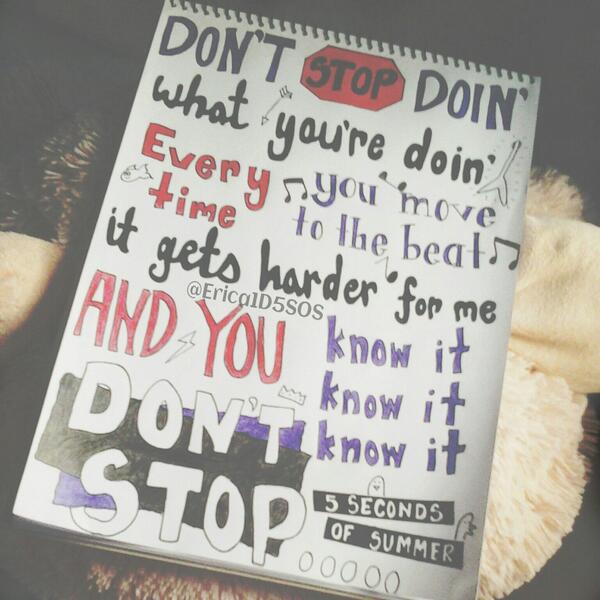 DON'T STOP DOIN'
what you're doin'
Every time
you move to the beat
it gets harder for me
@Erica1D5SOS
AND YOU
know it
know it
know it
DON'T STOP
5 SECONDS
OF SUMMER